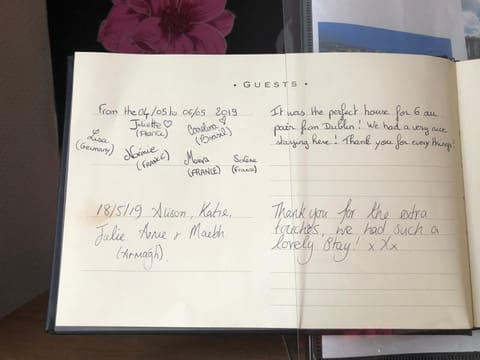 • GUESTS •
From the 04/05 to 06/05 2019
Juliette ♡
(France)
Carolina ♡
(Brasil)
Lisa
(Germany)
Noémie
(FRANCE)
Maïva
(FRANCE)
Solène
(France)
It was the perfect house for 6 au
pair from Dublin! We had a very nice
staying here! Thank you for everything!
18/5/19 Alison, Katie,
Julie Anne & Maebh
(Armagh).
Thank you for the extra
touches, we had such a
lovely stay! x Xx